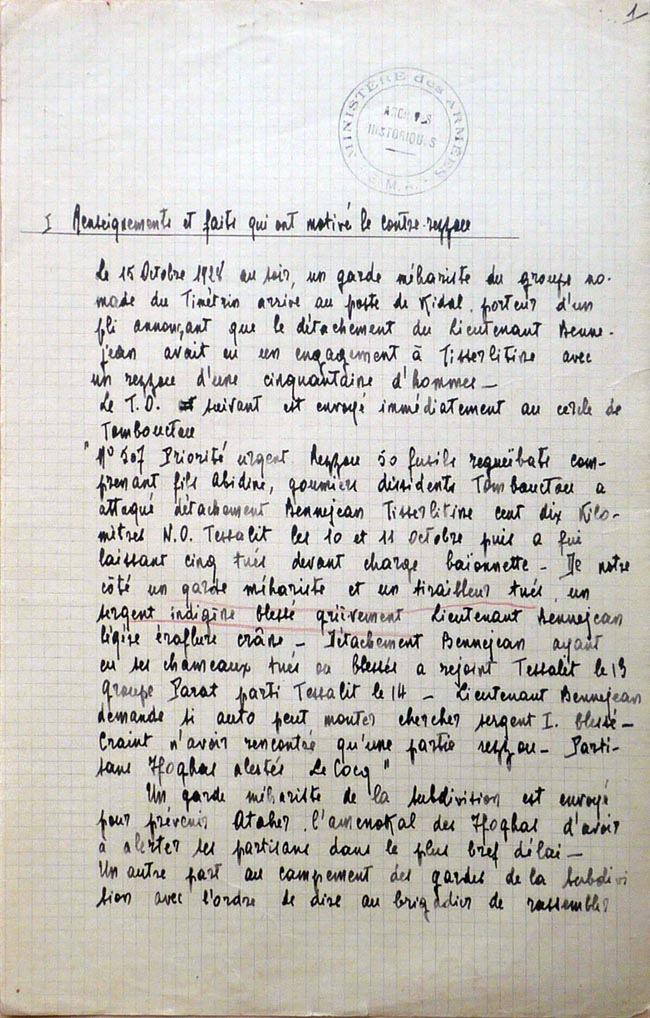 1
MINISTÈRE des ARMÉES
ARCHIVES
HISTORIQUES
E.M.A.
I Renseignements et faits qui ont motivé le contre-rezzou
Le 15 Octobre 1928 au soir, un garde méhariste du groupe no-
made du Timétrin arrive au poste de Kidal, porteur d'un
pli annonçant que le détachement du lieutenant Benne-
jean avait eu un engagement à Tisserlitine avec
un rezzou d'une cinquantaine d'hommes —
Le T.O. suivant est envoyé immédiatement au cercle de
Tombouctou
" N° 507 Priorité urgent Rezzou 50 fusils regueïbats com-
prenant fils Abidine, goumiers dissidents Tombouctou a
attaqué détachement Bennejean Tisserlitine cent dix Kilo-
mètres N.O. Tessalit les 10 et 11 Octobre puis a fui
laissant cinq tués devant charge baïonnette — De notre
côté un garde méhariste et un tirailleur tués, un
sergent indigène blessé grièvement Lieutenant Bennejean
légère éraflure crâne — Détachement Bennejean ayant
eu ses chameaux tués ou blessés a rejoint Tessalit le 13
groupe Parat parti Tessalit le 14 — Lieutenant Bennejean
demande si auto peut monter chercher sergent I. blessé —
Craint n'avoir rencontré qu'une partie rezzou — Parti-
sans Ifoghas alertés Le Cocq "
Un garde méhariste de la subdivision est envoyé
pour prévenir Ataher, l'amenokal des Ifoghas d'avoir
à alerter ses partisans dans le plus bref délai —
Un autre part au campement des gardes de la subdivi
sion avec l'ordre de dire au brigadier de rassembler